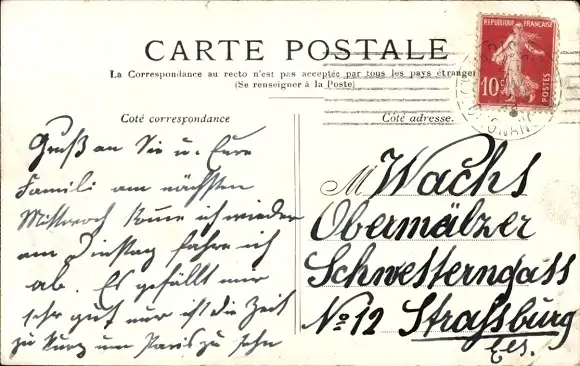 CARTE POSTALE
La Correspondance au recto n'est pas acceptée par tous les pays étranger
(Se renseigner à la Poste)
REPUBLIQUE FRANÇAISE
10c
POSTES
Coté correspondance
Gruß an Sie u. Eure
Famili am nächsten
Mittwoch komme ich wieder
am Dinstag fahre ich
ab. Es gefällt mir
sehr gut nur ist die Zeit
zu kurz um Paris zu sehn
Côté adresse.
M Wachs
Obermälzer
Schwesterngass
No 12 Strassburg
Els.